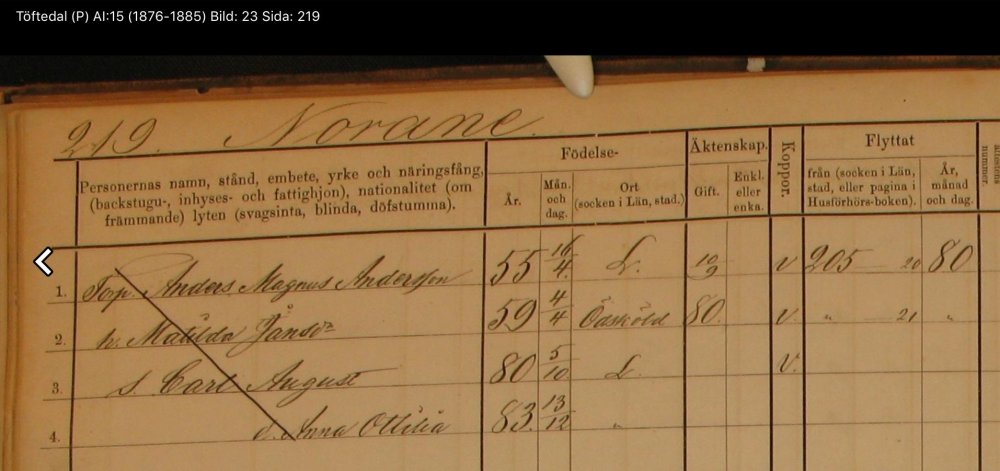 Töftedal (P) AI:15 (1876-1885) Bild: 23 Sida: 219
219. Norane.
Personernas namn, stånd, embete, yrke och näringsfång, (backstugu-, inhyses- och fattighjon), nationalitet (om främmande) lyten (svagsinta, blinda, döfstumma). Födelse- År. Mån. och dag. Ort (socken i Län, stad.) Äktenskap. Gift. Enkl. eller enka. Koppor. Flyttat från (socken i Län, stad, eller pagina i Husförhörs-boken). År, månad och dag. nummer.
1. Torp. Anders Magnus Andersson 55 16/4 L. 10/9 v 205 20 80
2. h. Matilda Jansdr 59 4/4 Ödsköld 80. v. " 21 "
3. s. Carl August 80 5/10 L. v.
4. d. Anna Ottilia 83. 13/12 "